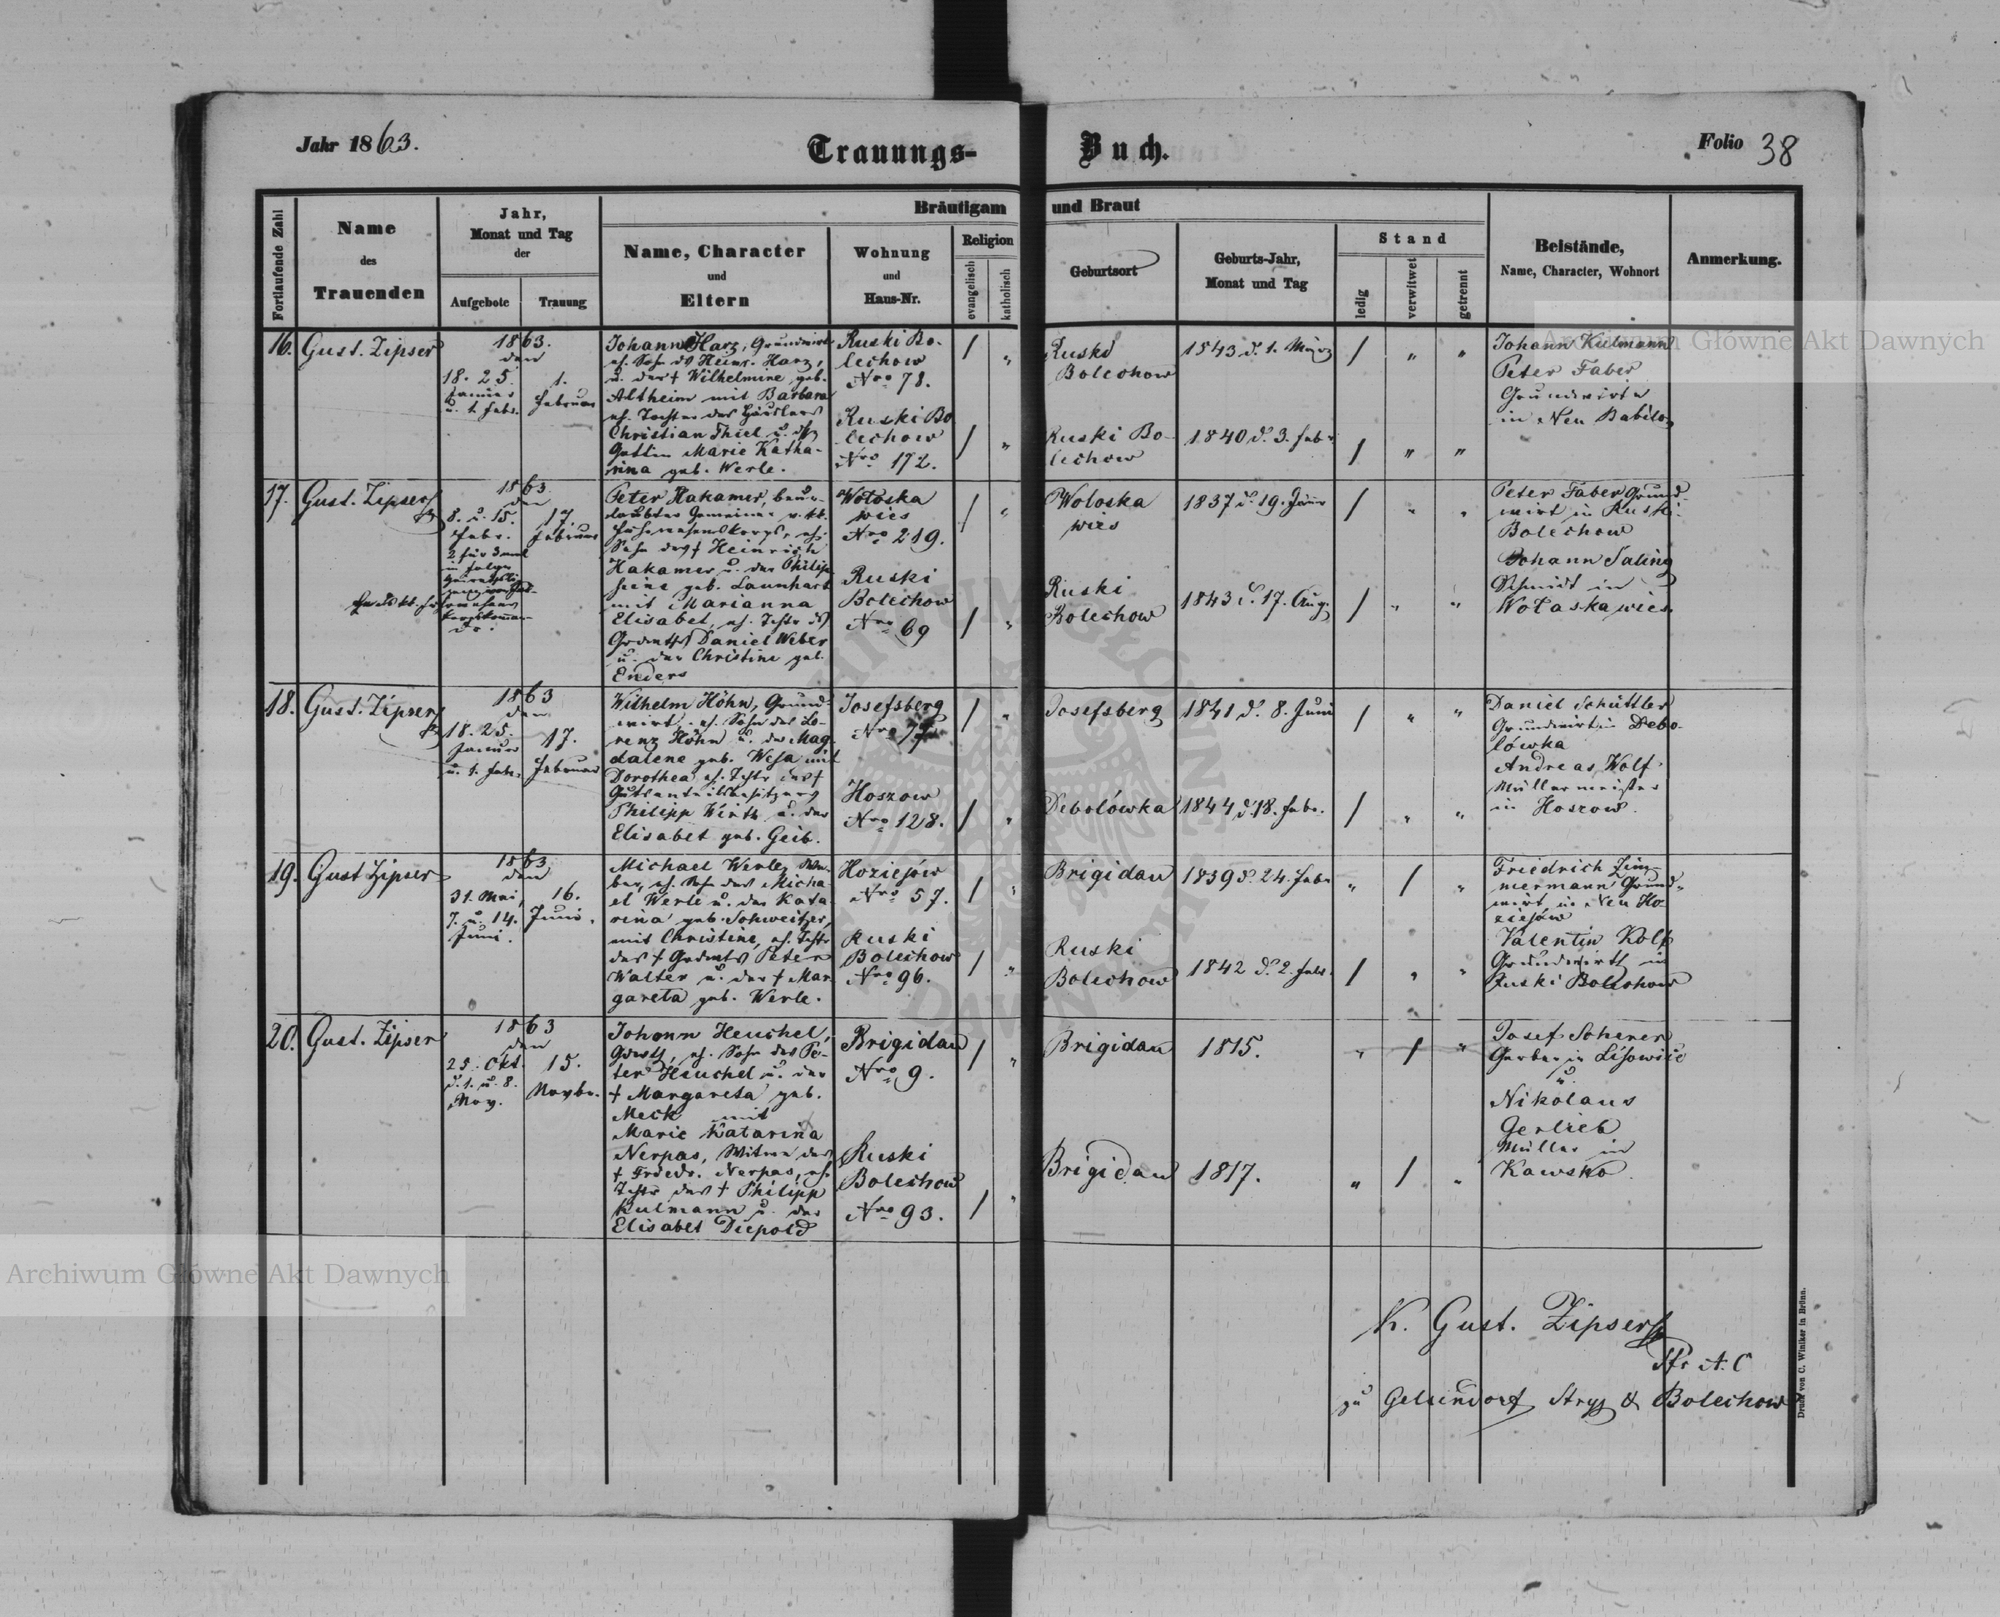 Jahr 1863.
Trauungs-Buch.
Folio 38
Fortlaufende Zahl
Name
des
Trauenden
Jahr,
Monat und Tag
der
Aufgebote
Trauung
Bräutigam und Braut
Name, Character
und
Eltern
Wohnung
und
Haus-Nr.
Religion
evangelisch
katholisch
Geburtsort
Geburts-Jahr,
Monat und Tag
Stand
ledig
verwitwet
getrennt
Beistände,
Name, Character, Wohnort
Anmerkung.
16.
Gust. Zipser
1863.
den
18. 25.
Januar
u. 1. Febr.
1.
Februar
Johann Harz, Grundwirt
eh. Sohn des Heinr. Harz,
u. der † Wilhelmine geb.
Altheim mit Barbara
eh. Tochter des Häuslers
Christian Thiel u. dss
Gattin Marie Katha-
rina geb. Werle.
Ruski Bo-
lechow
Nro 78.
Ruski Bo
lechow
Nro 172.
/ "
/ "
Ruski
Bolechow
Ruski Bo-
lechow
1843 d. 1. März
1840 d. 3. Febr
/ " "
/ " "
Johann Kulmann
Peter Faber
Grundwirte
in Neu Babilon
17.
Gust. Zipser
1863
den
8. u. 15.
Febr.
2 für 3mal
in folge
17.
Februar
Peter Hakamer, beur-
laubter Gemeiner v. kk.
Fuhrwesenskorps, eh.
Sohn des † Heinrich
Hakamer u. der Philip
pine geb. Launhart
mit Marianna
Elisabet, eh. Tchtr ds
Grdwths Daniel Weber
u. der Christine geb.
Enders
Wołoska
wies
Nro 219.
Ruski
Bolechow
Nro 69
/ "
/ "
Woloska
wies
Ruski
Bolechow
1837 d. 19. Jänr
1843 d. 17. Aug.
/ " "
/ " "
Peter Faber Grund-
wirt in Ruski-
Bolechow
Johann Saling
Schmidt in
Wołoska wies.
18.
Gust. Zipser
1863
den
18. 25.
Januar
u. 1. Febr.
17.
Februar
Wilhelm Höhn, Grund-
wirt, eh. Sohn des Lo-
renz Höhn u. der Mag-
dalene geb. Wesa mit
Dorothea eh. Tchtr des †
Gutsantheilsbesitzers
Philipp Wirth u. der
Elisabet geb. Geib.
Josefsberg
Nro
Hoszow
Nro 128.
/ "
/ "
Josefsberg
Debolówka
1841 d. 8. Juni
1844 d. 18. Febr.
/ " "
/ " "
Daniel Schüttler
Grundwirt in Debo-
lówka
Andreas Wolf
Müllermeister
in Hoszow.
19.
Gust Zipser
1863
den
31. Mai,
7. u. 14.
Juni.
16.
Juni.
Michael Werle, We-
ber, eh. Sohn des Micha-
el Werle u. der Kata-
rina geb. Schweitzer,
mit Christine, eh. Tchtr
des † Grdwts Peter
Walter u. der † Mar-
gareta geb. Werle.
Hoziejów
Nro 57.
Ruski
Bolechow
Nro 96.
/ "
/ "
Brigidau
Ruski
Bolechow
1839 d. 24. Febr
1842 d. 2. Febr.
" / "
/ " "
Friedrich Zim-
mermann Grund-
wirt in Neu Ho-
ziejów
Valentin Kolf
Grundwirth in
Ruski Bolechow
20.
Gust. Zipser
1863
den
25. Okt.
d. 1. u. 8.
Nov.
15.
Novbr.
Johann Heuchel,
Grdwth, eh. Sohn des Pe-
ter Heuchel u. der
† Margareta geb.
Meck mit
Marie Katarina
Nerpas, Witwe des
† Friedr. Nerpas, eh.
Tchtr des † Philipp
Kulmann u. der
Elisabet Diepold
Brigidau
Nro 9.
Ruski
Bolechow
Nro 93.
/ "
/ "
Brigidau
Brigidau
1815.
1817.
" / "
" / "
Josef Scherer
Gerber in Lisowice
u.
Nikolaus
Gerlieb
Müller in
Kawsko.
K. Gust. Zipser
Pfr A. C
zu Gelsendorf Stryj & Bolechow
Druck von C. Winiker in Brünn.
Archiwum Główne Akt Dawnych
Archiwum Główne Akt Dawnych